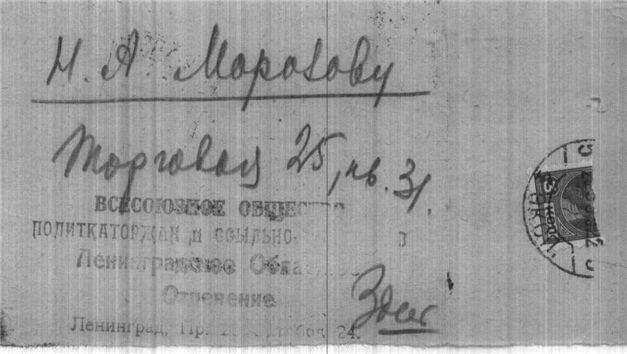 Н. А Морозову
Торговая 25, кв. 31.
ВСЕСОЮЗНОЕ ОБЩЕС
ПОЛИТКАТОРЖАН и ССЫЛЬНО- В
Ленинградское Обла
Отделение
Ленинград, Пр. 24.
Здесь